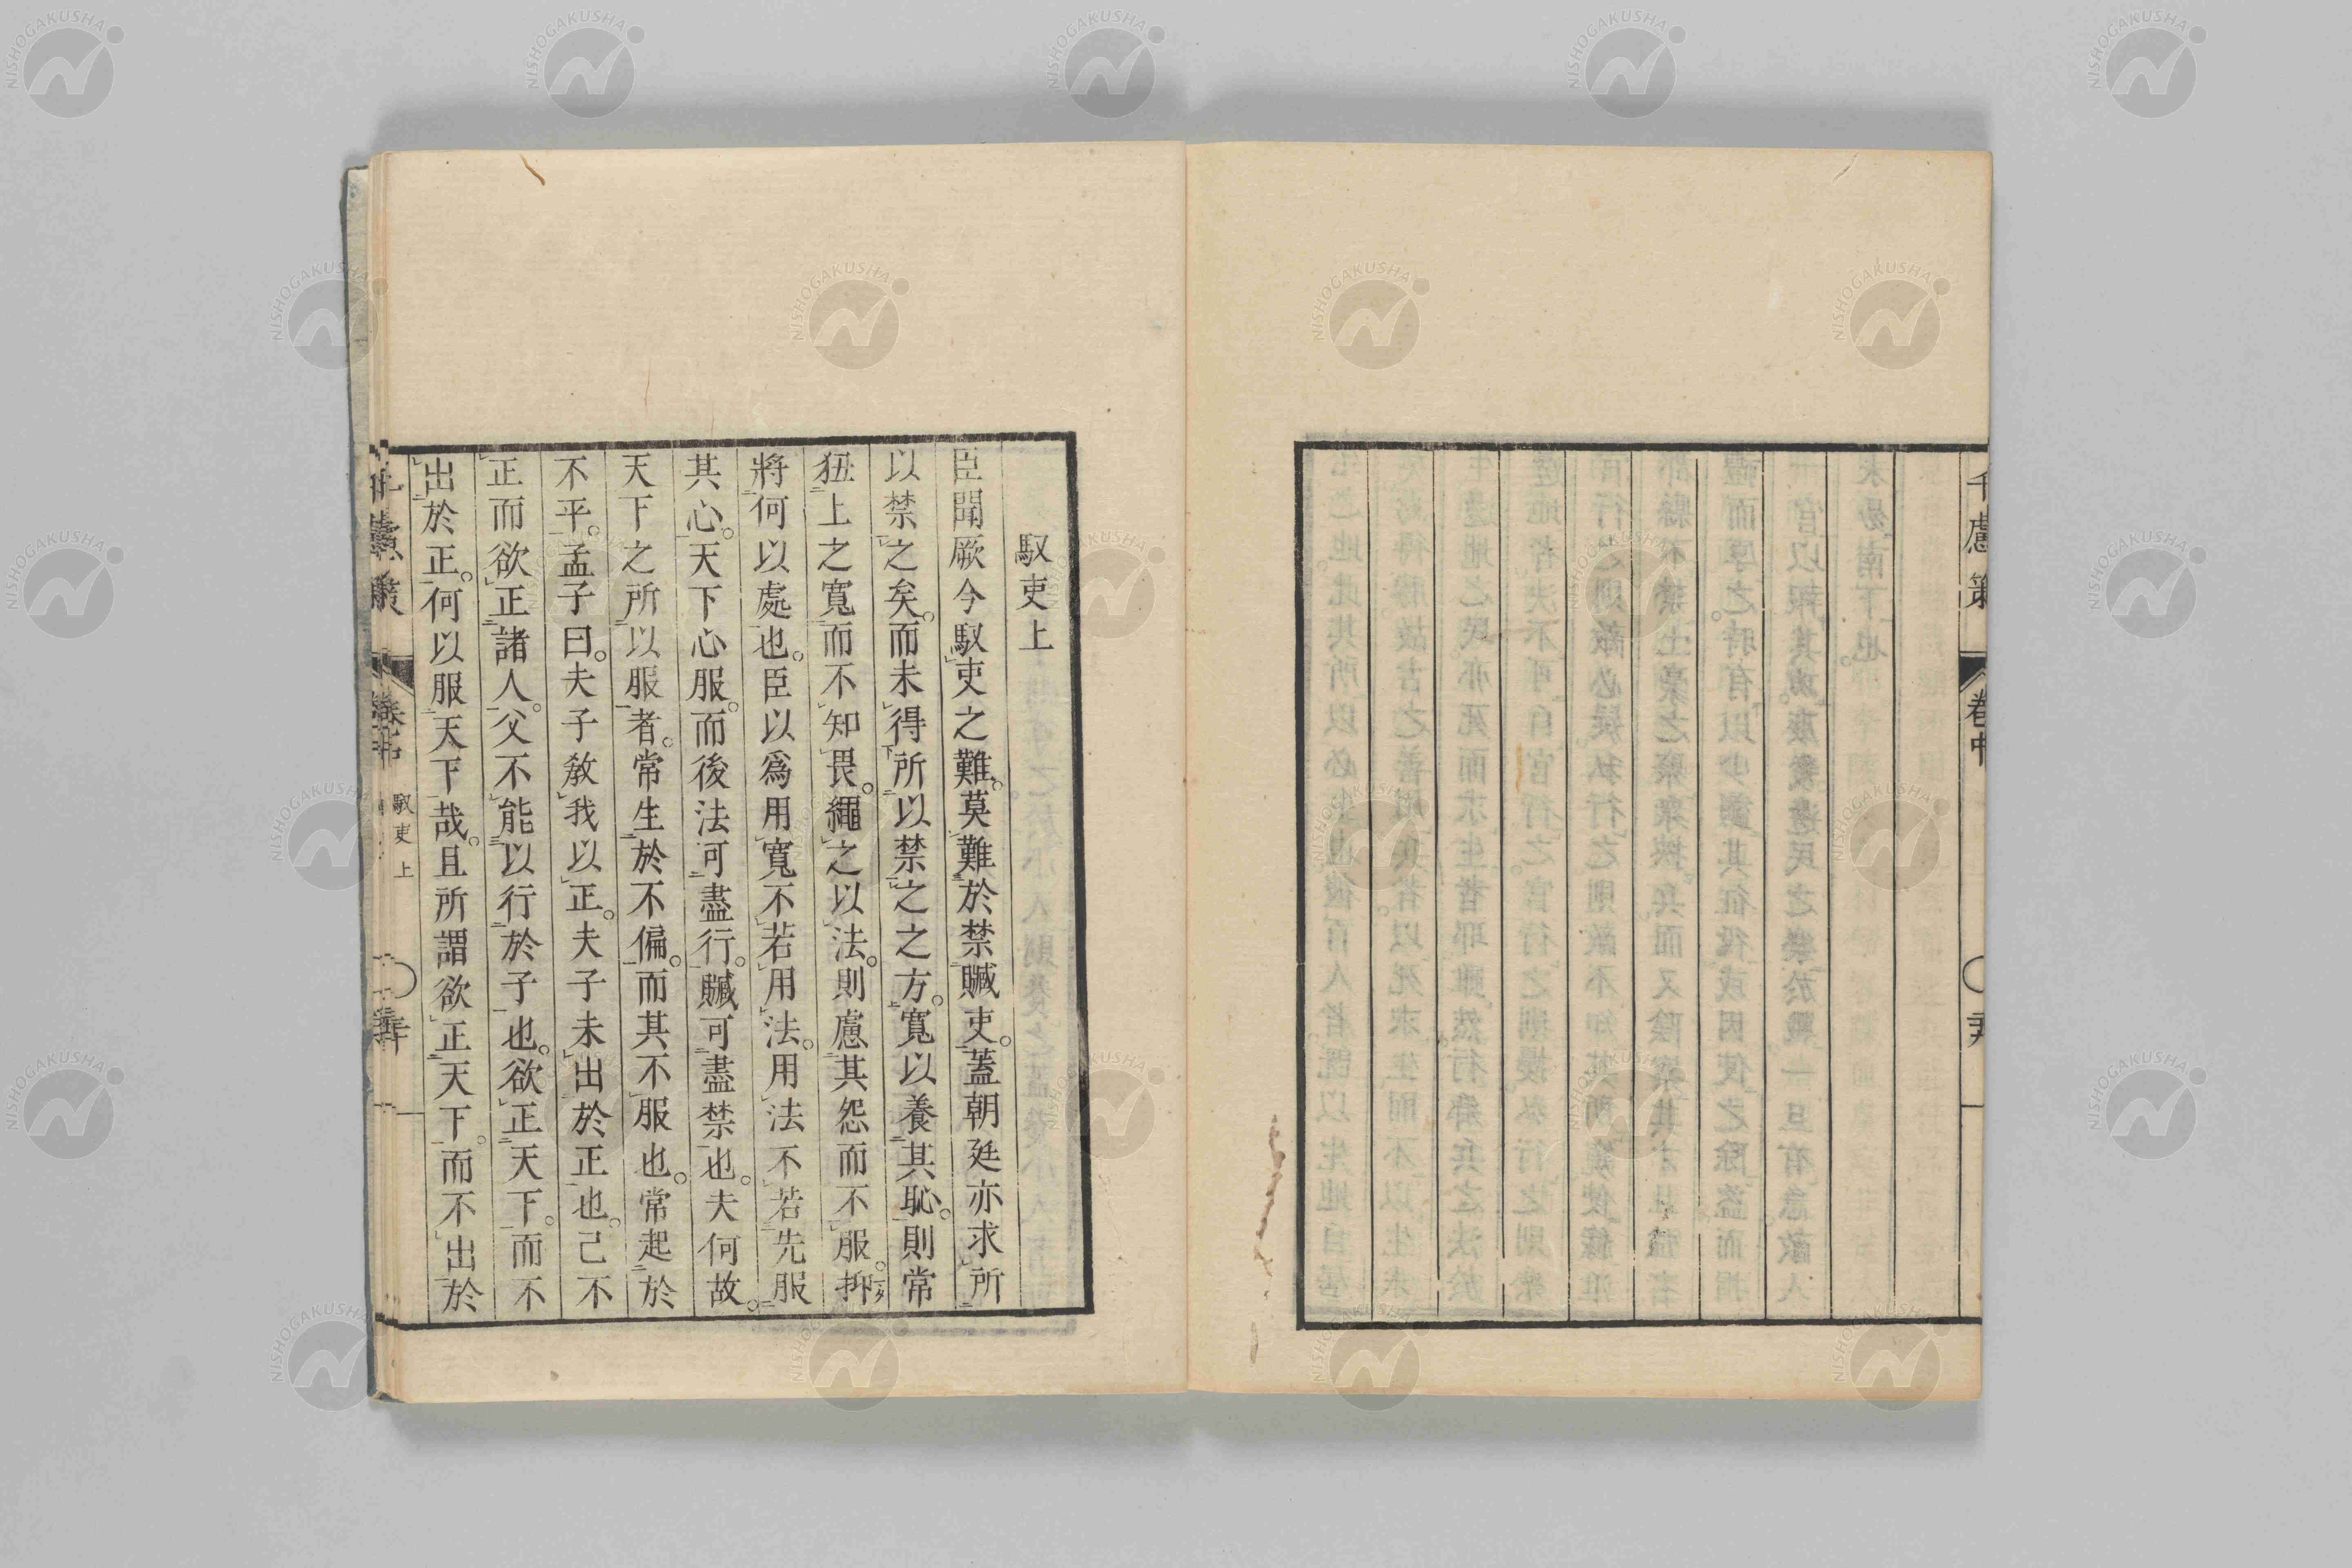 千慮策 卷中
馭吏上
臣聞厥今馭吏之難。莫難於禁贓吏。蓋朝廷亦求所
以禁之矣。而未得所以禁之之方。寬以養其恥。則常
狃上之寬而不知畏。繩之以法。則慮其怨而不服。抑
將何以處也。臣以爲用寬不若用法。用法不若先服
其心。天下心服。而後法可盡行。贓可盡禁也。夫何故。
天下之所以服者。常生於不偏。而其不服也。常起於
不平。孟子曰。夫子敎我以正。夫子未出於正也。己不
正而欲正諸人。父不能以行於子也。欲正天下。而不
出於正。何以服天下哉。且所謂欲正天下。而不出於
卷中 馭吏上
NISHOGAKUSHA